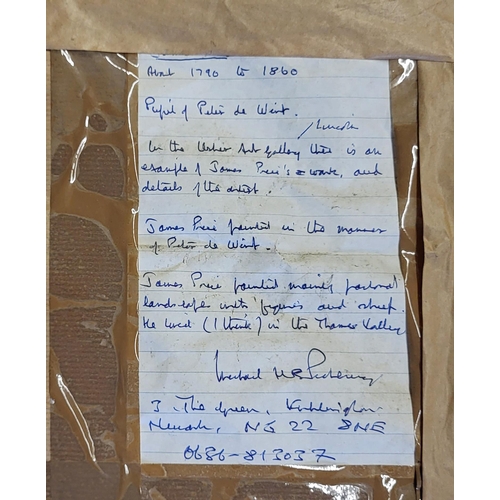 About 1790 to 1860
Pupil of Peter de Wint.
/Lincoln
In the Usher Art Gallery there is an
example of James Price's work, and
details of the artist.
James Price painted in the manner
of Peter de Wint.
James Price painted mainly pastoral
landscapes with figures and sheep.
He lived (I think) in the Thames Valley
Michael
3, The Green,
Newark, NG 22 8NE
0686-813037